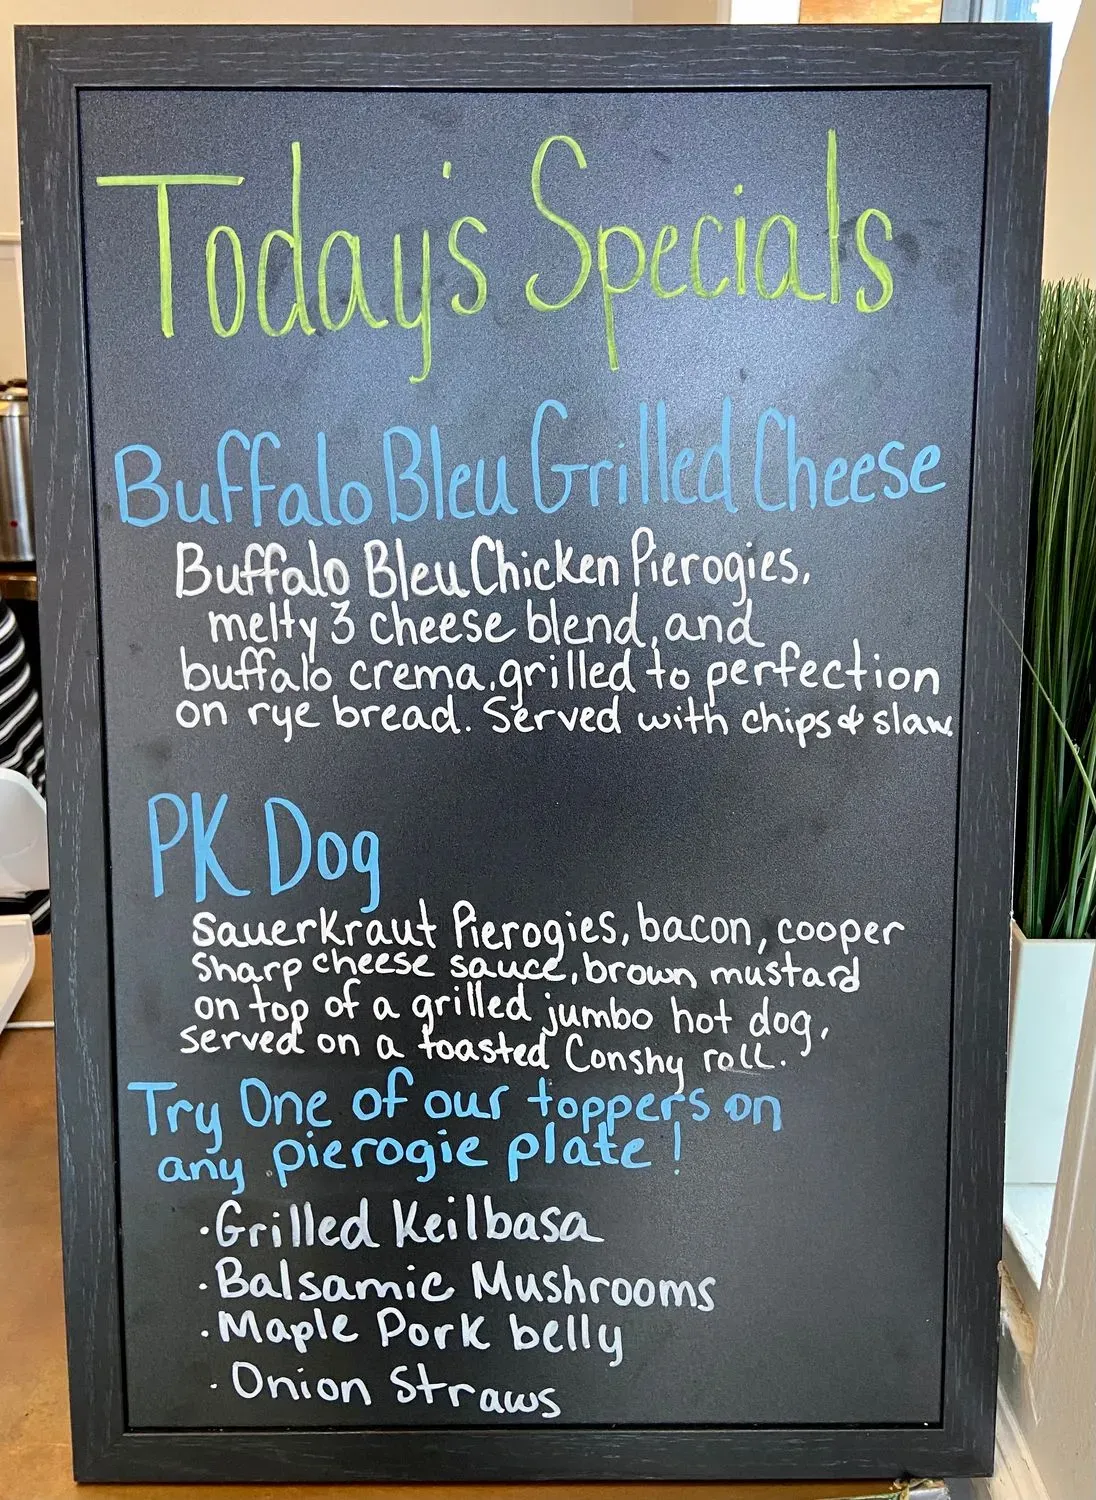 Today's Specials
Buffalo Bleu Grilled Cheese
Buffalo Bleu Chicken Pierogies,
melty 3 cheese blend, and
buffalo crema, grilled to perfection
on rye bread. Served with chips & slaw.
PK Dog
Sauerkraut Pierogies, bacon, cooper
sharp cheese sauce, brown mustard
on top of a grilled jumbo hot dog,
served on a toasted Conshy roll.
Try One of our toppers on
any pierogie plate!
· Grilled Keilbasa
· Balsamic Mushrooms
· Maple Pork belly
· Onion Straws